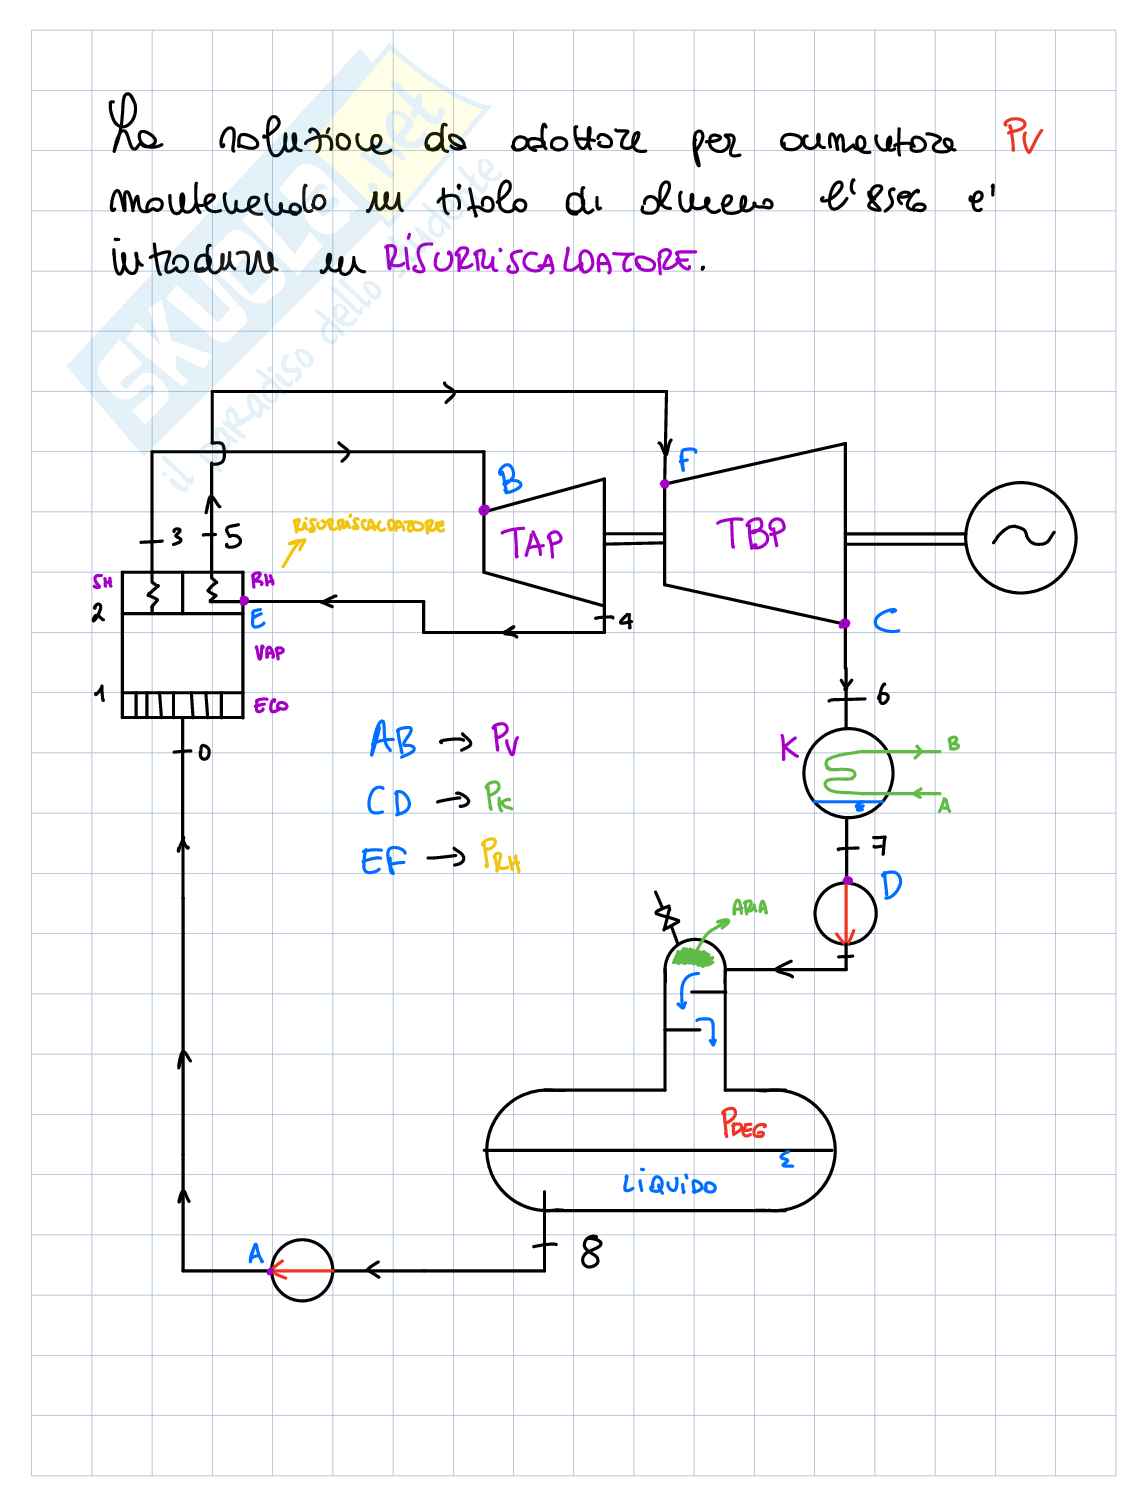 La soluzione da adottare per aumentare PV
mantenendo un titolo di almeno l'85% e'
introdurre un RISURRISCALDATORE.
SKUOLA.net
il paradiso dello studente
F
B
RISURRISCALDATORE
TAP
TBP
3
5
SH
RH
2
E
4
C
VAP
1
ECO
6
0
AB → PV
K
B
CD → PK
A
7
EF → PRH
D
ARIA
PDEG
LIQUIDO
A
8